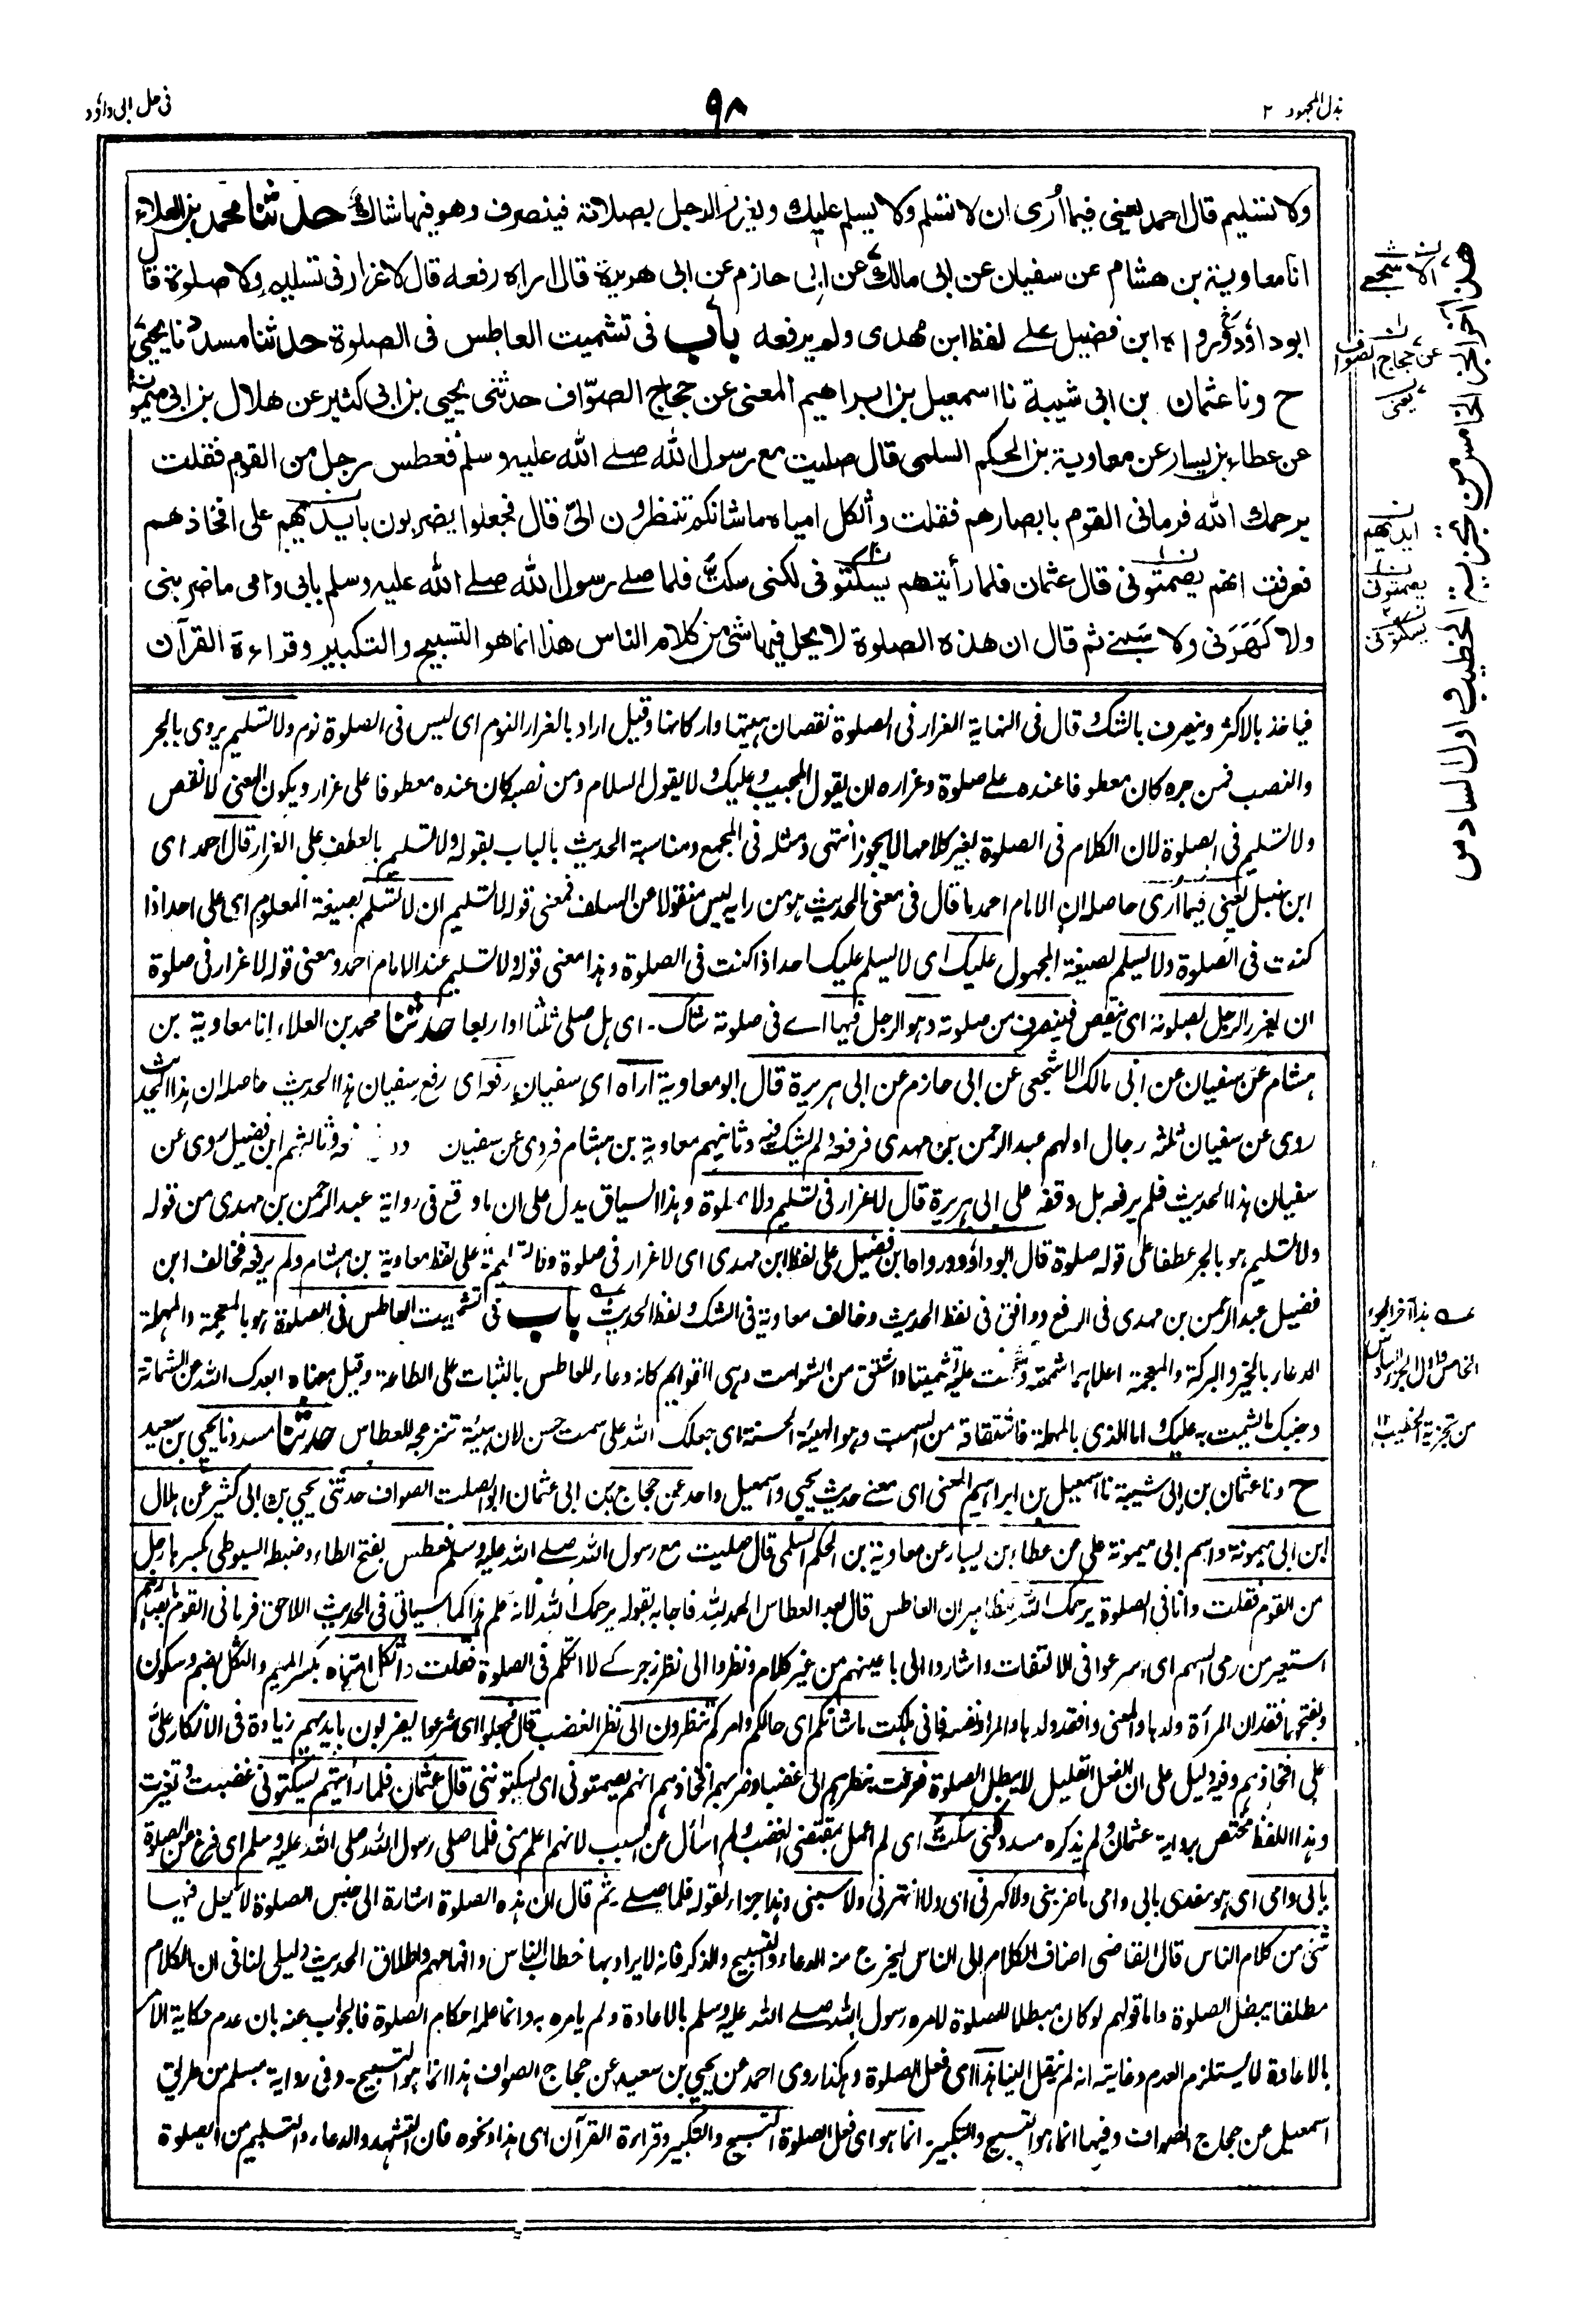 بذل المجهود ٢
٩٨
فى حل ابى داؤد
ولا تسليم قال احمد يعنى فيما أرى ان لا تسلم ولا يسلم عليك ويغرر الرجل بصلاته فينصرف وهو فيها شاك حدثنا محمد بن العلاء
انا معاوية بن هشام عن سفيان عن ابى مالك عن ابى حازم عن ابى هريرة قال اراه رفعه قال لا غرار فى تسليم ولا صلوة قال
ابو داؤد ورواه ابن فضيل على لفظ ابن مهدى ولم يرفعه باب فى تشميت العاطس فى الصلوة حدثنا مسدد نا يحيى
ح ونا عثمان بن ابى شيبة نا اسمعيل بن ابراهيم المعنى عن حجاج الصوّاف حدثنى يحيى بن ابى كثير عن هلال بن ابى ميمونة
عن عطاء بن يسار عن معاوية بن الحكم السلمى قال صليت مع رسول الله صلے الله عليه وسلم فعطس رجل من القوم فقلت
يرحمك الله فرمانى القوم بابصارهم فقلت واثكل امياه ما شانكم تنظرون الىّ قال فجعلوا يضربون بايديهم على افخاذهم
فعرفت انهم يصمتونى قال عثمان فلما رأيتهم يسكتونى لكنى سكتّ فلما صلے رسول الله صلے الله عليه وسلم بابى وامى ما ضربنى
ولا كَهَرَنى ولا سَبنے ثم قال ان هذه الصلوة لا يحل فيها شئ من كلام الناس هذا انما هو التسبيح والتكبير وقراءة القرآن
الاشجعى
عن حجاج الصواف
يعنى
ايديهم
يصمتونى
يسكتونى
هذا آخر الجزء الخامس من تجزية الخطيب و اول السادس
فياخذ بالاكثر وينصرف بالشك قال فى النهاية الغرار فى الصلوة نقصان هيئتها واركانها وقيل اراد بالغرار النوم اى ليس فى الصلوة نوم ولا تسليم يروى بالجر
والنصب فمن جره كان معطوفا عنده على صلوة وغراره ان يقول المجيب وعليك ولا يقول السلام ومن نصبه كان عنده معطوفا على غرار ويكون المعنى لا نقص
ولا تسليم فى الصلوة لان الكلام فى الصلوة لغير كلامها لا يجوز انتهى ومثله فى المجمع ومناسبة الحديث بالباب بقوله ولا تسليم بالعطف على الغرار قال احمد اى
ابن حنبل يعنى فيما أرى حاصله ان الامام احمد ما قال فى معنى الحديث هو من رايه ليس منقولا عن السلف فمعنى قوله لا تسليم ان لا تسلم بصيغة المعلوم اى على احد اذا
كنت فى الصلوة ولا يسلم بصيغة المجهول عليك اى لا يسلم عليك احد اذا كنت فى الصلوة وهذا معنى قوله ولا تسليم عند الامام احمد ومعنى قوله لا غرار فى صلوة
ان يغرر الرجل بصلوته اى ينقص فينصرف من صلوته وهو الرجل فيها اے فى صلوته شاك ۔ اى هل صلى ثلثا او اربعا حدثنا محمد بن العلاء انا معاوية بن
هشام عن سفيان عن ابى مالك الاشجعى عن ابى حازم عن ابى هريرة قال ابو معاوية اراه اى سفيان رفعه اى رفع سفيان هذا الحديث حاصله ان هذا الحديث
روى عن سفيان ثلثة رجال اولهم عبد الرحمن بن مهدى فرفعه ولم يشك فيه وثانيهم معاوية بن هشام فروى عن سفيان وثالثهم ابن فضيل روى عن
سفيان هذا الحديث فلم يرفعه بل وقفه على ابى هريرة قال لا غرار فى تسليم ولا صلوة وهذا السياق يدل على ان ما وقع فى رواية عبد الرحمن بن مهدى من قوله
ولا تسليم هو بالجر عطفا على قوله صلوة قال ابو داؤد ورواه ابن فضيل على لفظ ابن مهدى اى لا غرار فى صلوة ولا تسليم على لفظ معاوية بن هشام ولم يرفعه فخالف ابن
فضيل عبد الرحمن بن مهدى فى الرفع ووافق فى لفظ الحديث وخالف معاوية فى الشك ولفظ الحديث باب فى تشميت العاطس فى الصلوة هو بالمعجمة والمهملة
الدعاء بالخير والبركة والمعجمة اعلاهما شمته وشمت عليه تشميتا واشتق من الشوامت وهى القوائم كانه دعاء للعاطس بالثبات على الطاعة وقيل معناه ابعدك الله عن الشماتة
وجنبك ما يشمت به عليك واما الذى بالمهملة فاشتقاقه من السمت وهو الهيئة الحسنة اى جعلك الله على سمت حسن لان هيئته تنزعج للعطاس حدثنا مسدد نا يحيى بن سعيد
ح ونا عثمان بن ابى شيبة نا اسمعيل بن ابراهيم المعنى اى معنى حديث يحيى واسمعيل واحد عن حجاج بن ابى عثمان ابو الصلت الصواف حدثنى يحيى بن ابى كثير عن هلال
ابن ابى ميمونة واسم ابى ميمونة على عن عطاء بن يسار عن معاوية بن الحكم السلمى قال صليت مع رسول الله صلے الله عليه وسلم فعطس بفتح الطاء وضبطه السيوطى بكسرها رجل
من القوم فقلت وانا فى الصلوة يرحمك الله ظاهره ان العاطس قال بعد العطاس الحمد لله فاجابه بقوله يرحمك الله لانه علم هذا كما سياتى فى الحديث اللاحق فرمانى القوم بابصارهم
استعير من رمى السهم اى اسرعوا فى الالتفات واشاروا الى باعينهم من غير كلام ونظروا الى نظر زجر كے لا اتكلم فى الصلوة فقلت واثكل امياه بكسر الميم والثكل بضم وسكون
وبفتحهما فقدان المرأة ولدها والمعنى وافقد ولدها والمراد نفسه فانى هلكت ما شانكم اى حالكم وامركم تنظرون الى نظر الغضب قال فجعلوا اى شرعوا يضربون بايديهم زيادة فى الانكار علىّ
على افخاذهم وفيه دليل على ان الفعل القليل لا يبطل الصلوة فعرفت بنظرهم الى غضبا وضربهم افخاذهم انهم يصمتونى اى يسكتوننى قال عثمان فلما رأيتهم يسكتونى غضبت وتغيرت
وهذا اللفظ مختص برواية عثمان ولم يذكره مسدد لكنى سكت اى لم اعمل بمقتضى الغضب ولم اسأل عن السبب لانهم اعلم منى فلما صلى رسول الله صلى الله عليه وسلم اى فرغ عن الصلوة
بابى وامى اى هو مفدى بابى وامى ما ضربنى ولا كهرنى اى ولا انتهرنى ولا سبنى وهذا جزاء لقوله فلما صلے ۔ ثم قال ان هذه الصلوة اشارة الى جنس الصلوة لا يحل فيها
شئ من كلام الناس قال القاضى اضاف الكلام الى الناس ليخرج منه الدعاء والتسبيح والذكر فانه لا يراد بها خطاب الناس وافهامهم واطلاق الحديث دليل لنا فى ان الكلام
مطلقا يبطل الصلوة واما قولهم لو كان مبطلا للصلوة لامره رسول الله صلے الله عليه وسلم بالاعادة ولم يامره به وانما علمه احكام الصلوة فالجواب عنه بان عدم حكاية الامر
بالاعادة لا يستلزم العدم وغايته انه لم ينقل الينا هذا اى فعل الصلوة وهكذا روى احمد عن يحيى بن سعيد عن حجاج الصواف هذا انما هو التسبيح ۔ وفى رواية مسلم من طريق
اسمعيل عن حجاج الصواف وفيها انما هو التسبيح والتكبير ۔ انما هو اى فعل الصلوة التسبيح والتكبير وقراءة القرآن اى هذا ونحوه فان التشهد والدعاء والتسليم من الصلوة
هذا آخر الجزء
الخامس واول الجزء السادس
من تجزية الخطيب ١٢